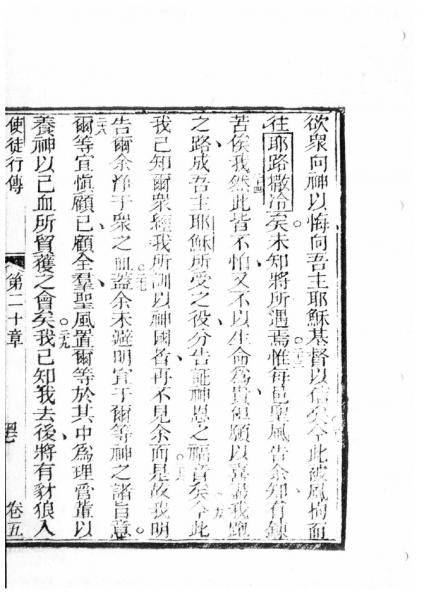 欲眾向神以悔向吾主耶穌基督以信矣今此被風而
往耶路撒冷矣。未知將所遇焉。二三惟每邑聖風告余知有鏈
苦俟我。二四然此皆不怕、又不以生命為貴、但願以喜盡我跑
之路、成吾主耶穌所受之役、分告証神恩之福音矣。今此
我已知爾眾經我所訓以神國者、再不見余面。是故我明
告爾、余淨于眾之血。二七蓋余未避明宣于爾等神之諸旨意。
二八爾等宜慎顧己、顧全羣、聖風置爾等於其中為理董以
養神以己血所買獲之會矣。二九我已知我去後、將有豺狼入
使徒行傳 第二十章 卷五